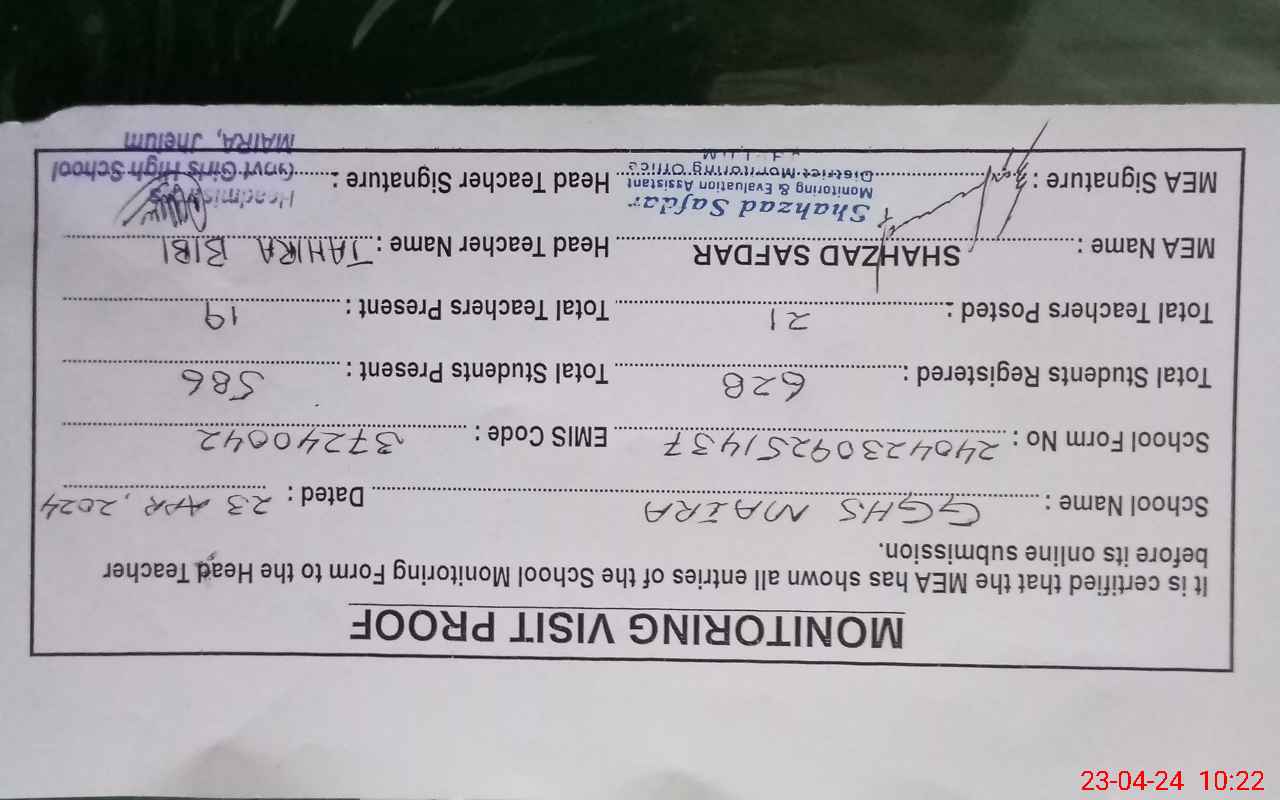 MONITORING VISIT PROOF
It is certified that the MEA has shown all entries of the School Monitoring Form to the Head Teacher
before its online submission.
School Name : GGHS MAIRA Dated : 23 APR, 2024
School Form No : 24042309251437 EMIS Code : 37240042
Total Students Registered : 628 Total Students Present : 586
Total Teachers Posted : 21 Total Teachers Present : 19
MEA Name : SHAHZAD SAFDAR Head Teacher Name : TAHIRA BIBI
MEA Signature : Head Teacher Signature :
Shahzad Safdar
Monitoring & Evaluation Assistant
District Monitoring Office
Govt Girls High School
MAIRA, Jhelum
23-04-24 10:22